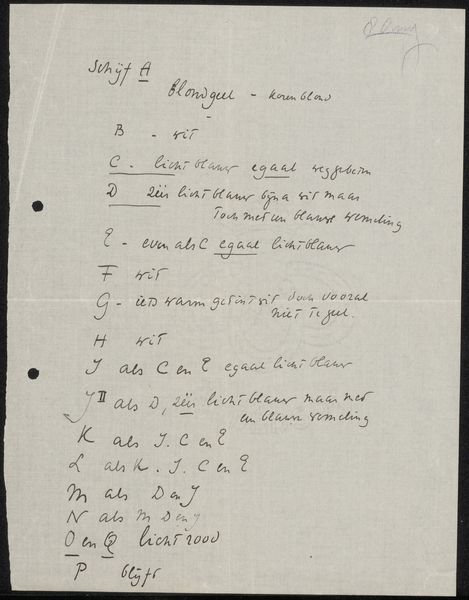 Schijf A
Blondgeel - korenblond
B - wit
C - licht blauw egaal
D zéér licht blauw bijna wit maar
toch met een blauwe
E - even als C egaal lichtblauw
F wit
G - iets warm getint wit doch vooral
niet te geel.
H wit
J als C en E egaal licht blauw
J II als D, zéér licht blauw maar met
een blauwe
K als J. C en E
L als K. J. C en E
M als D en J
N als M D en J
O en Q licht rood
P blijft